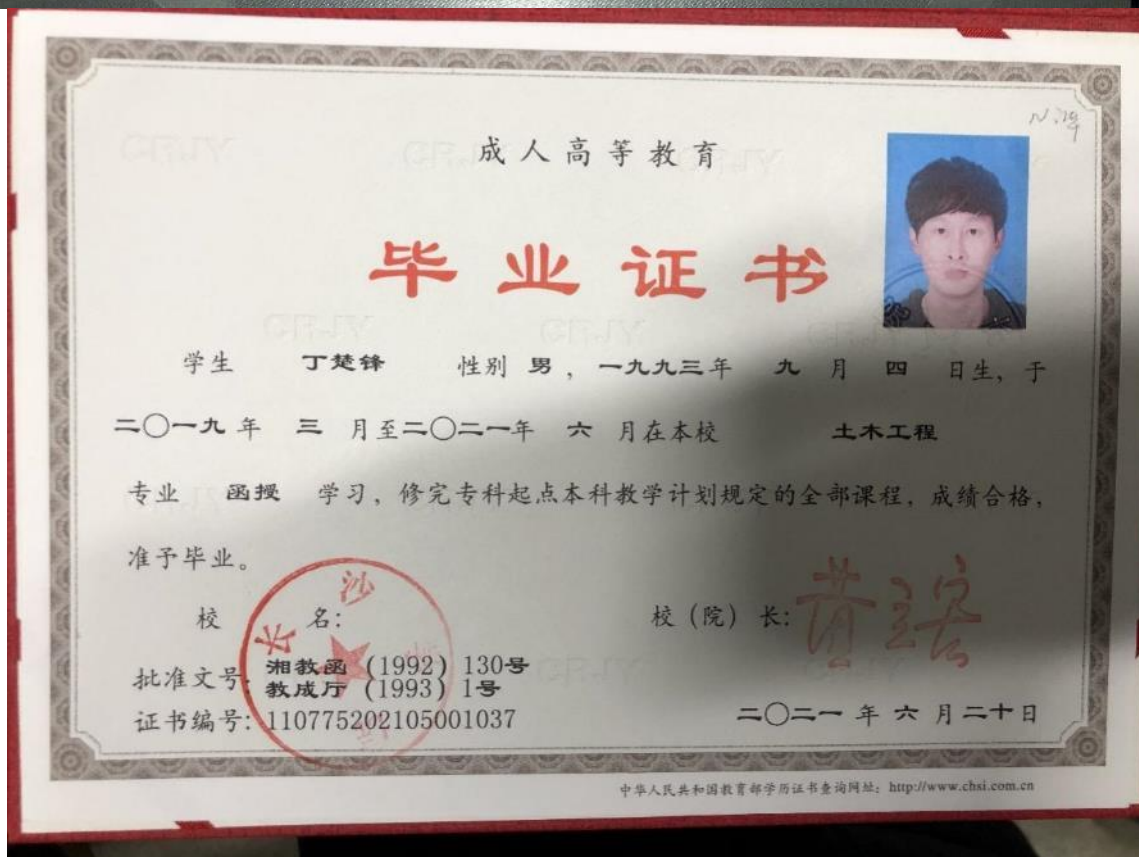 成人高等教育
毕业证书
学生 丁楚锋 性别 男，一九九三年 九 月 四 日生，于
二〇一九 年 三 月至二〇二一年 六 月在本校 土木工程
专业 函授 学习，修完专科起点本科教学计划规定的全部课程，成绩合格，
准予毕业。
校 名： 校（院）长：
批准文号：湘教函（1992）130号
教成厅（1993）1号
证书编号：110775202105001037
二〇二一 年 六 月二十日
中华人民共和国教育部学历证书查询网址：http://www.chsi.com.cn